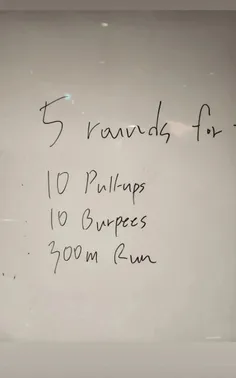 5 rounds for
10 Pull-ups
10 Burpees
300m Run